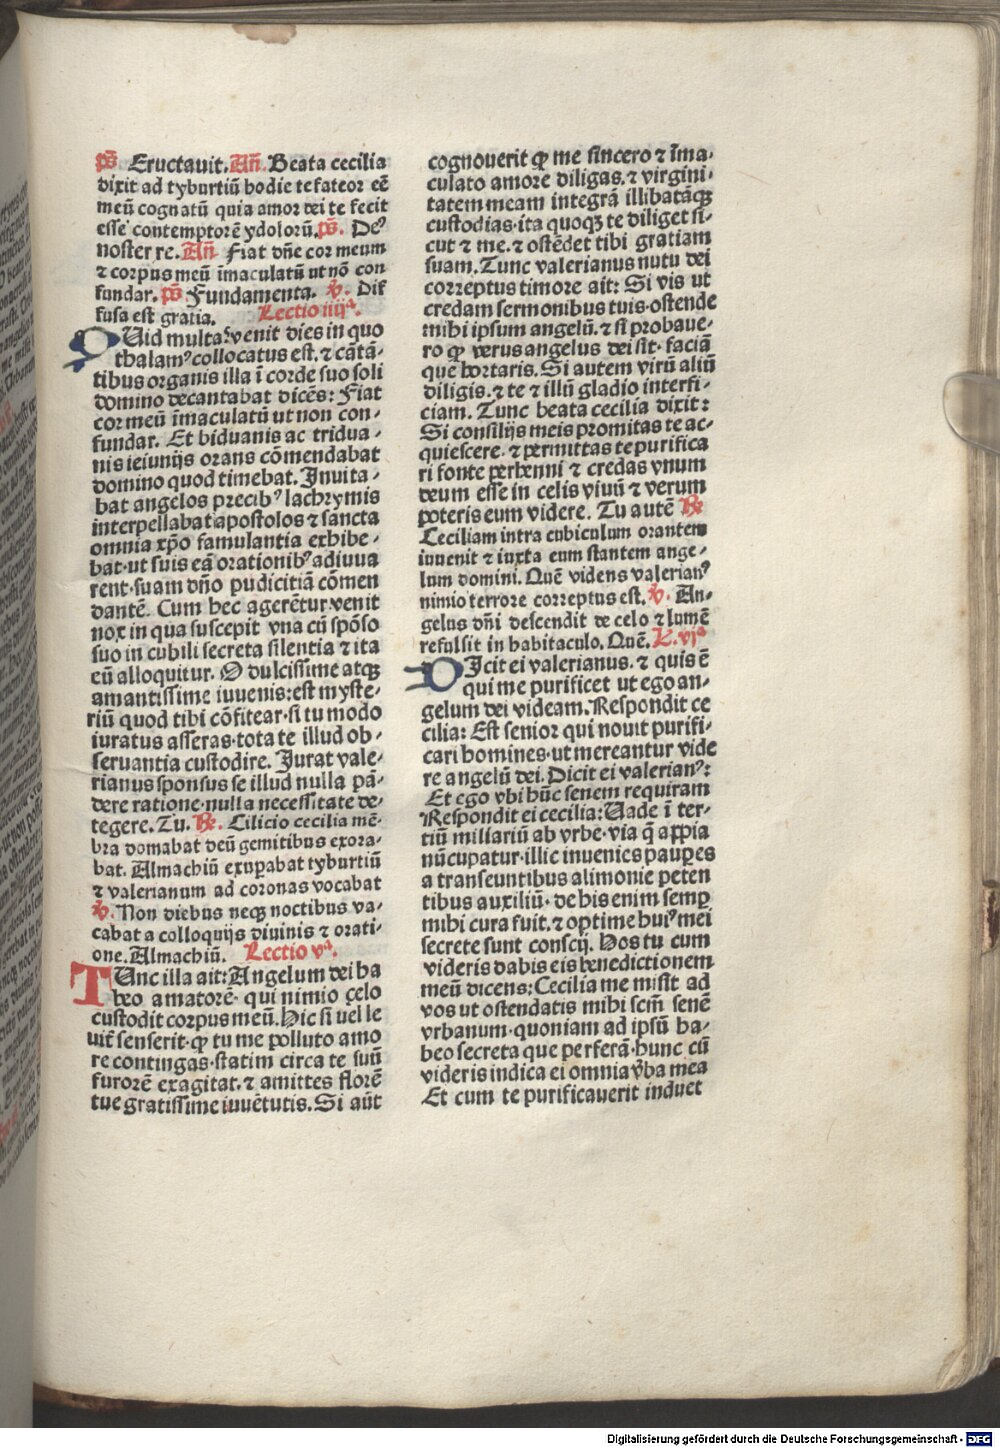 ps̄ Eructauit. An̄. Beata cecilia
dixit ad tyburtiū hodie te fateor eē
meū cognatū quia amor dei te fecit
esse contemptorē ydolorū. ps̄. Deꝰ
noster re. An̄ Fiat dn̄e cor meum
⁊ corpus meū īmaculatū ut nō con
fundar. ps̄ Fundamenta. ꝟ. Dif
fusa est gratia. Lectio iiijᵃ.
QUid multaˢ venit dies in quo
thalamꝰ collocatus est. ⁊ cātā-
tibus organis illa ī corde suo soli
domino decantabat dicēs: Fiat
cor meū īmaculatū ut non con-
fundar. Et biduanis ac tridua-
nis ieiunijs orans cōmendabat
domino quod timebat. Inuita-
bat angelos precibꝰ lachrymis
interpellabat apostolos ⁊ sancta
omnia xp̄o famulantia exhibe-
bat. ut suis eā orationibꝰ adiuua
rent. suam dn̄o pudicitiā cōmen
dantē. Cum hec agerētur venit
nox in qua suscepit vna cū spōso
suo in cubili secreta silentia ⁊ ita
eū alloquitur. O dulcissime atqꝫ
amantissime iuuenis: est myste-
riū quod tibi cōfitear. si tu modo
iuratus asseras. tota te illud ob-
seruantia custodire. Jurat vale-
rianus sponsus se illud nulla pā-
dere ratione. nulla necessitate de-
tegere. Tu. ℟. Cilicio cecilia mē-
bra domabat deū gemitibus exora-
bat. Almachiū exuꝑabat tyburtiū
⁊ valerianum ad coronas vocabat
ꝟ. Non diebus neqꝫ noctibus va-
cabat a colloquijs diuinis ⁊ orati-
one. Almachiū. Lectio vᵃ.
TUnc illa ait: Angelum dei ha
beo amatorē. qui nimio çelo
custodit corpus meū. Hic si uel le
uit̄ senserit. ꝙ tu me polluto amo
re contingas. statim circa te suū
furorē exagitat. ⁊ amittes florē
tue gratissime iuuētutis. Si aūt
cognouerit ꝙ me sincero ⁊ īma-
culato amore diligas. ⁊ virgini-
tatem meam integrā illibatāqꝫ
custodias. ita quoqꝫ te diliget si-
cut ⁊ me. ⁊ ostēdet tibi gratiam
suam. Tunc valerianus nutu dei
correptus timore ait: Si vis ut
credam sermonibus tuis. ostende
mihi ipsum angelū. ⁊ si probaue-
ro ꝙ verus angelus dei sit. faciā
que hortaris. Si autem virū aliū
diligis. ⁊ te ⁊ illū gladio interfi-
ciam. Tunc beata cecilia dixit:
Si consilijs meis promitas te ac-
quiescere. ⁊ permittas te purifica
ri fonte perhenni ⁊ credas vnum
deum esse in celis viuū ⁊ verum
poteris eum videre. Tu autē ℟
Ceciliam intra cubiculum orantem
inuenit ⁊ iuxta eum stantem ange-
lum domini. Quē videns valerianꝰ
nimio terrore correptus est. ꝟ. An-
gelus dn̄i descendit de celo ⁊ lumē
refulsit in habitaculo. Quē. L. vjᵃ
DIcit ei valerianus. ⁊ quis ē
qui me purificet ut ego an-
gelum dei videam. Respondit ce
cilia: Est senior qui nouit purifi-
cari homines. ut mereantur vide
re angelū dei. Dicit ei valerianꝰ:
Et ego vbi hūc senem requiram
Respondit ei cecilia: Uade ī ter-
tiū miliariū ab vrbe. via q̄ appia
nūcupatur. illic inuenies pauꝑes
a transeuntibus alimonie peten
tibus auxiliū. de his enim semꝑ
mihi cura fuit. ⁊ optime huiꝰ mei
secrete sunt conscij. Hos tu cum
videris dabis eis benedictionem
meū dicens: Cecilia me misit ad
vos ut ostendatis mihi scm̄ senē
vrbanum. quoniam ad ipsū ha-
beo secreta que perferā. hunc cū
videris indica ei omnia v̄ba mea
Et cum te purificauerit induet
Digitalisierung gefördert durch die Deutsche Forschungsgemeinschaft - DFG